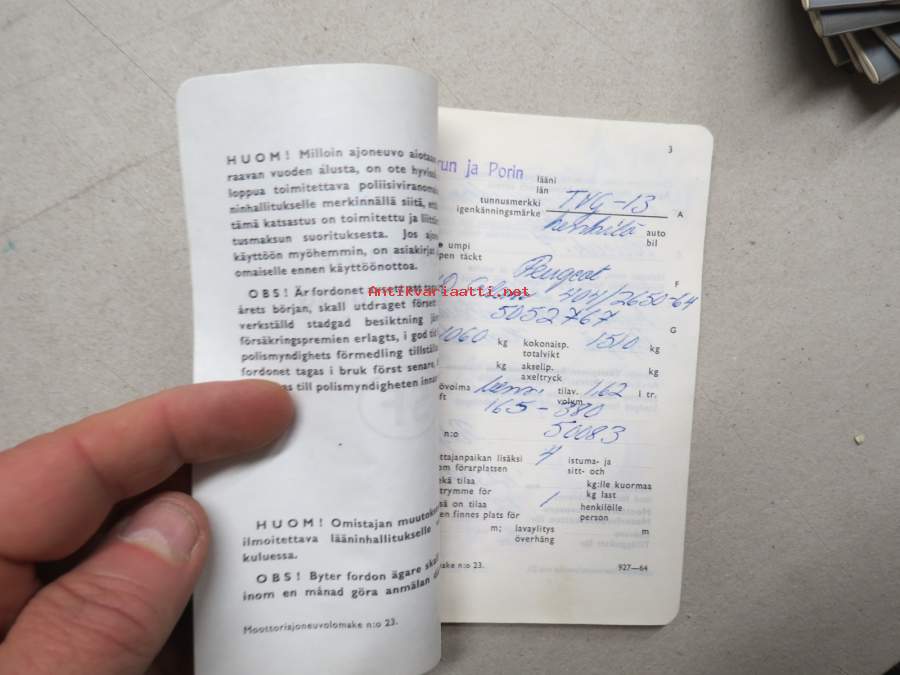 HUOM! Milloin ajoneuvo aiotaan
raavan vuoden alusta, on ote hyvissä
loppua toimitettava poliisiviranom
ninhallitukselle merkinnällä siitä, ett
tämä katsastus on toimitettu ja liitt
tusmaksun suorituksesta. Jos ajo
käyttöön myöhemmin, on asiakirjat
omaiselle ennen käyttöönottoa.
OBS! Är fordonet avsett att
årets början, skall utdraget förset
verkställd stadgad besiktning jä
försäkringspremien erlagts, i god tid
polismyndighets förmedling tillstäl
fordonet tagas i bruk först senare,
till polismyndigheten innan
HUOM! Omistajan muutoks
ilmoitettava lääninhallitukselle
kuluessa.
OBS! Byter fordon ägare skall
inom en månad göra anmälan d
Moottoriajoneuvolomake n:o 23.
3
run ja Porin
lääni
län
tunnusmerkki TVG-13 A
igenkänningsmärke
henkilö auto
bil
umpi
pen täckt
Peugeot F
404/2650-64
5052767 G
1060 kg kokonaisp. 1510 kg
totalvikt
kg akselip. kg
axeltryck
övoima bens. tilav. 1,62 l tr.
ft volym
165-380
n:o 50083
ttajanpaikan lisäksi 4 istuma- ja
om förarplatsen sitt- och
ekä tilaa kg:lle kuormaa
trymme för kg last
sä on tilaa 1 henkilölle
en finnes plats för person
m; lavaylitys m
överhäng
ake n:o 23. 927—64
Antikvariaatti.net